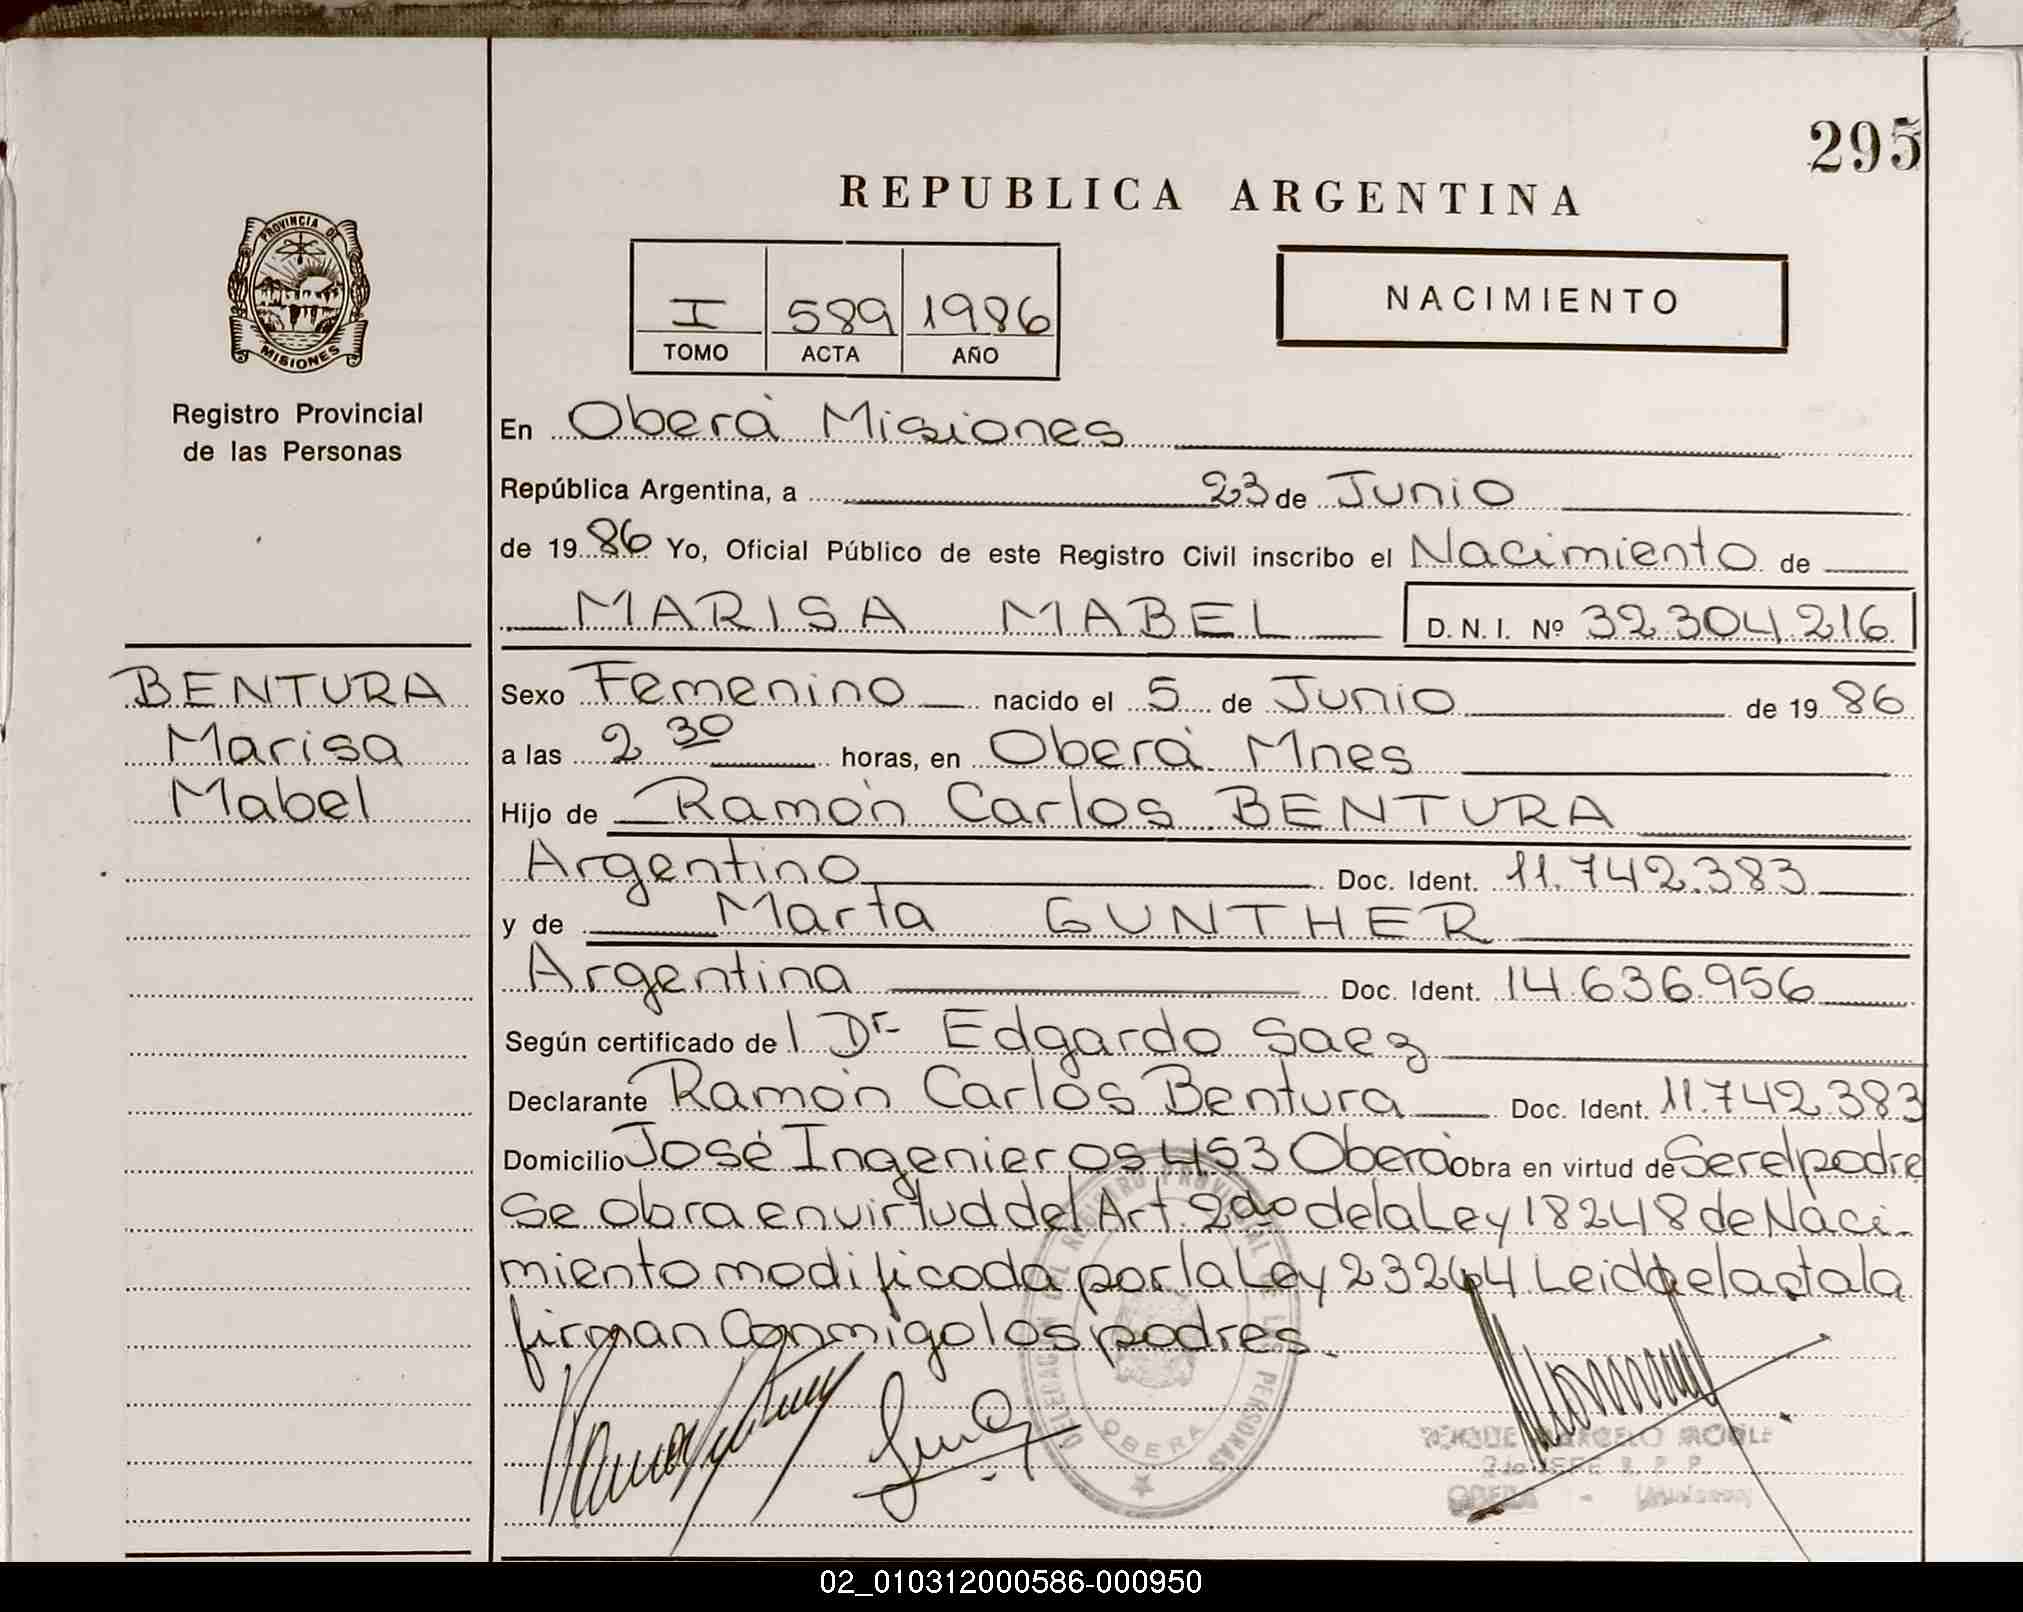 295
REPUBLICA ARGENTINA
PROVINCIA DE
MISIONES
Registro Provincial
de las Personas
I 589 1986
TOMO ACTA AÑO
NACIMIENTO
En Oberá Misiones
República Argentina, a 23 de Junio
de 1986 Yo, Oficial Público de este Registro Civil inscribo el Nacimiento de
MARISA MABEL D.N.I. Nº 32.304.216
BENTURA
Marisa
Mabel
Sexo Femenino nacido el 5 de Junio de 1986
a las 2 30 horas, en Oberá Mnes
Hijo de Ramón Carlos BENTURA
Argentino Doc. Ident. 11.742.383
y de Marta GUNTHER
Argentina Doc. Ident. 14.636.956
Según certificado de l Dr Edgardo Saez
Declarante Ramón Carlos Bentura Doc. Ident. 11.742.383
Domicilio José Ingenieros 453 Oberá Obra en virtud de Ser el padre
Se obra en virtud del Art. 2do de la Ley 18248 de Naci-
miento modificada por la Ley 23264 Leida el acta la
firman Conmigo los padres.
DELEGACION DEL REGISTRO PROVINCIAL DE LAS PERSONAS
OBERA
MARCELO
2do JEFE R. P. P.
OBERA - (Misiones)
02_010312000586-000950